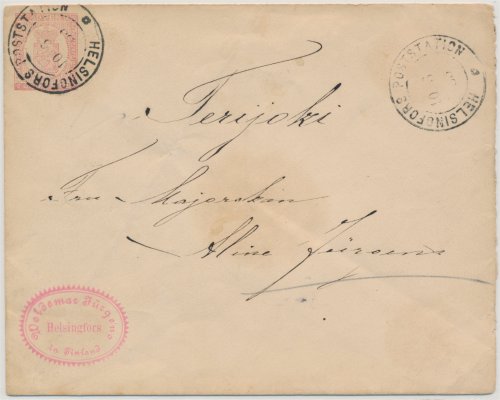 HELSINGFORS POSTSTATION
HELSINGFORS POSTSTATION
Terijoki
Fru Majorskin
Aline Jürgens
Woldemar Jürgens
Helsingfors
in Finland